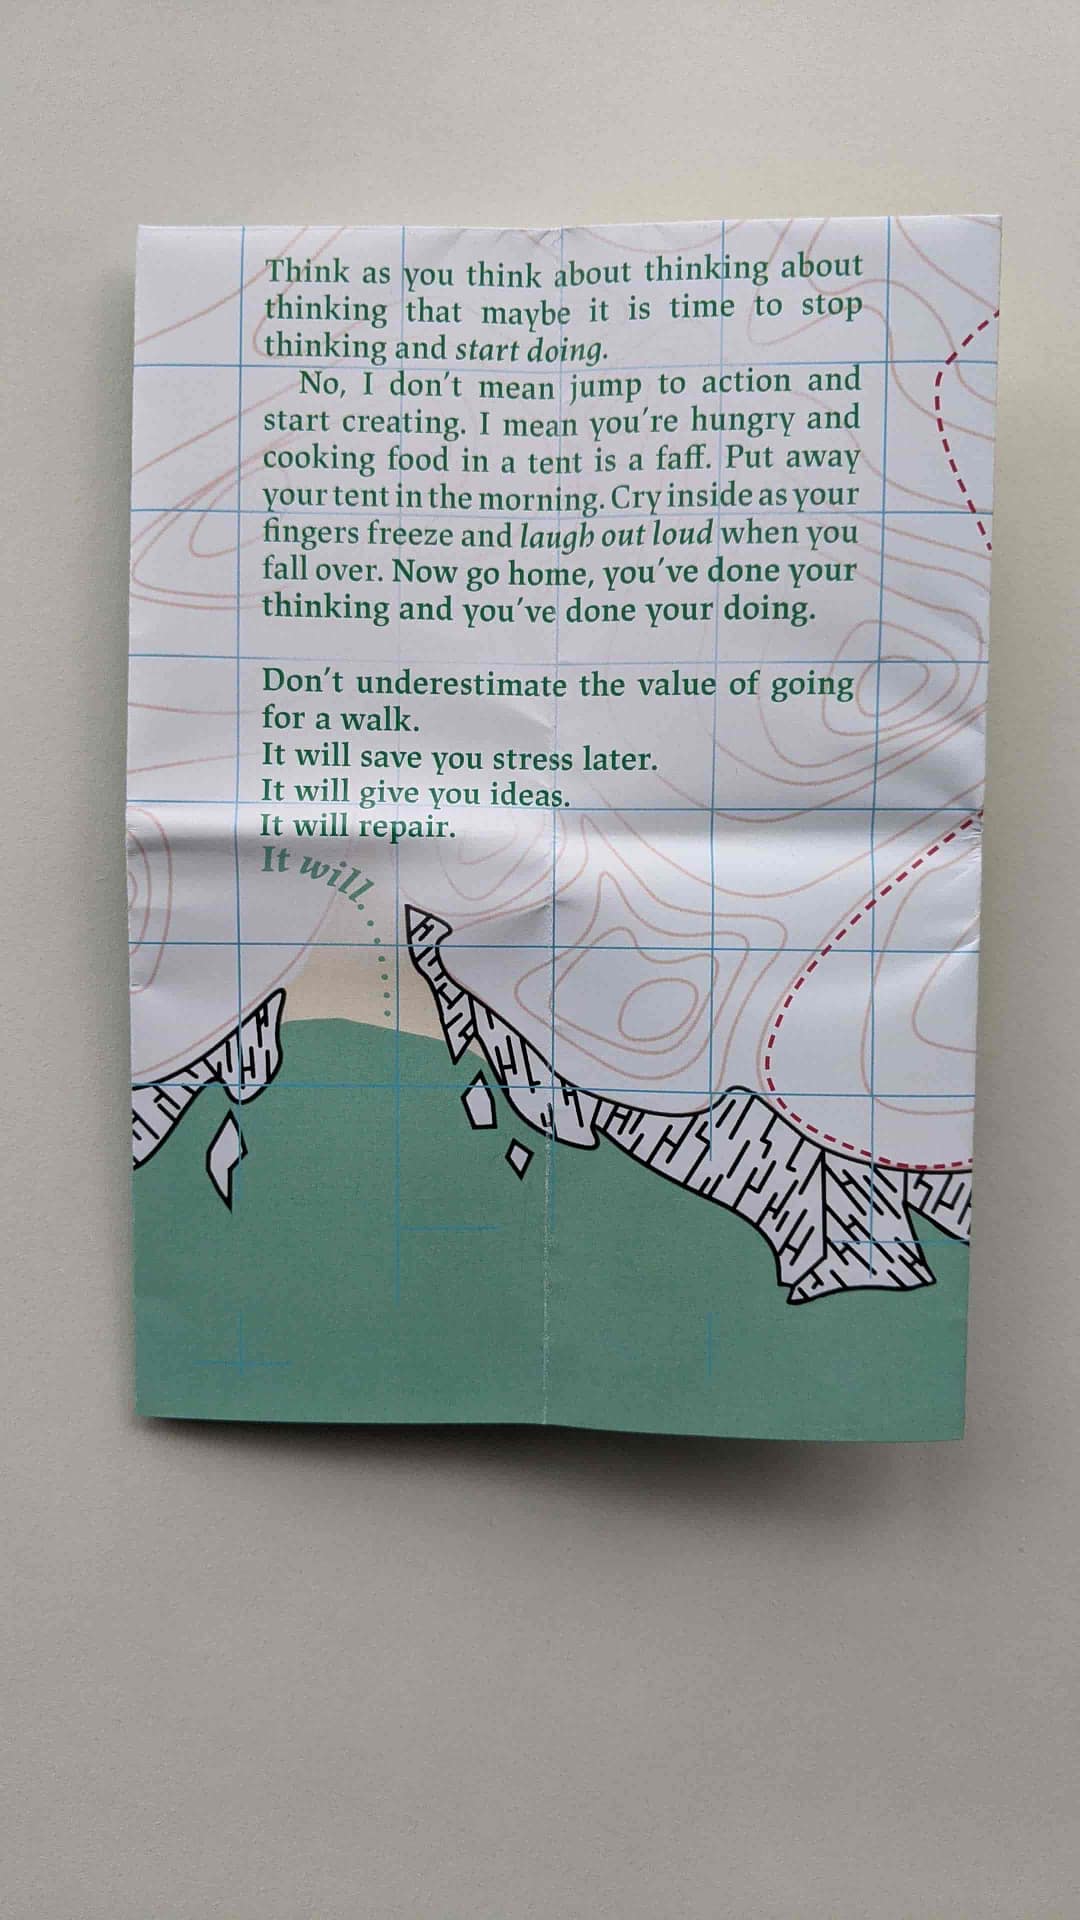 Think as you think about thinking about
thinking that maybe it is time to stop
thinking and start doing.
No, I don't mean jump to action and
start creating. I mean you're hungry and
cooking food in a tent is a faff. Put away
your tent in the morning. Cry inside as your
fingers freeze and laugh out loud when you
fall over. Now go home, you've done your
thinking and you've done your doing.
Don't underestimate the value of going
for a walk.
It will save you stress later.
It will give you ideas.
It will repair.
It will..........